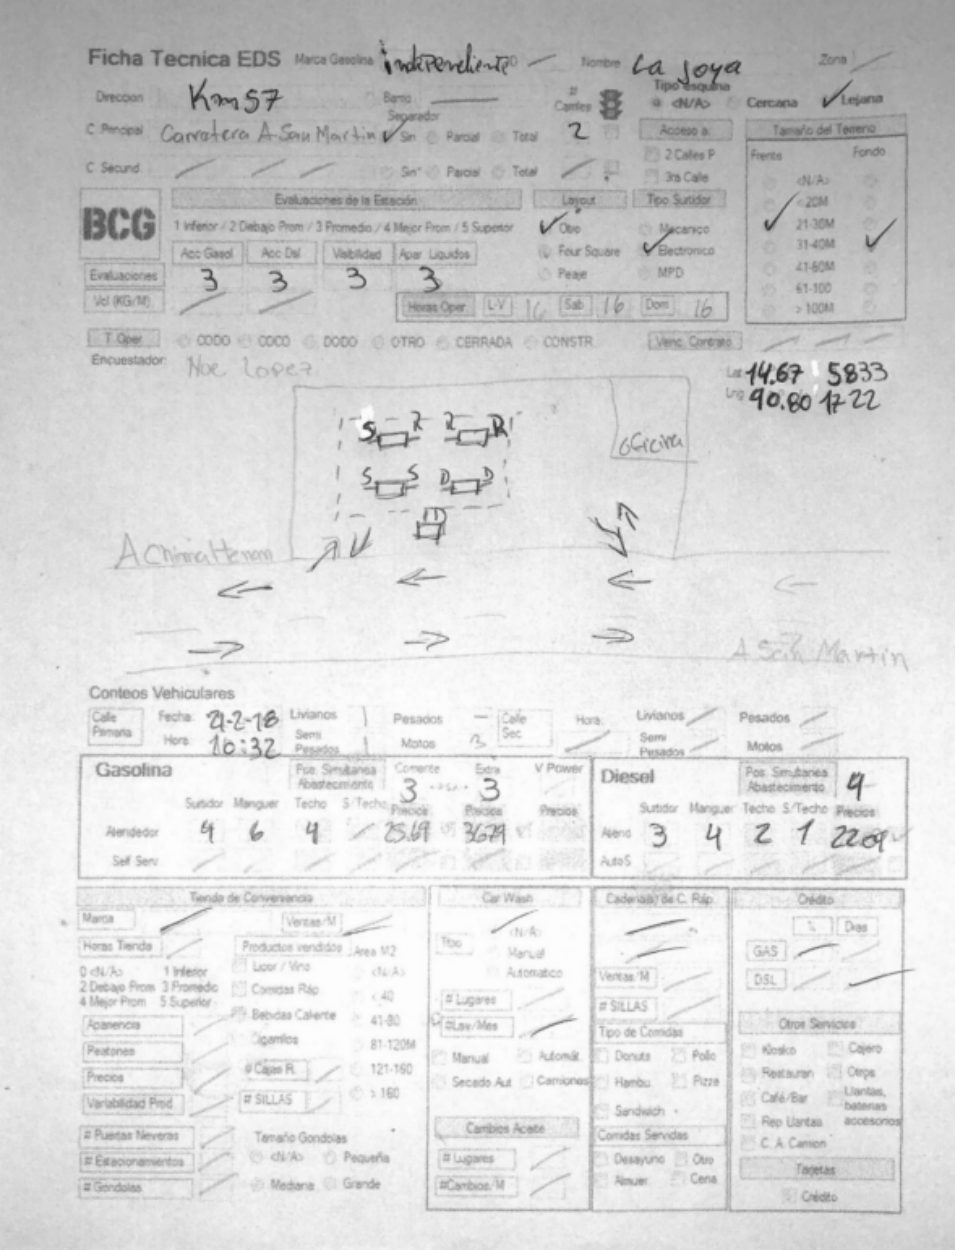 Ficha Tecnica EDS Marca Gasolina independiente Nombre La Joya Zona
Direccion Km 57 Barrio # Carriles Tipo esquina <N/A> Cercana Lejana
C Principal Carratera A San Martin Separador Sin Parcial Total 2 Acceso a: Tamaño del Terreno
2 Calles P Frente Fondo
C Secund Sin Parcial Total 3ra Calle <N/A>
BCG Evaluaciones de la Estación Layout Tipo Surtidor < 20M
1 Inferior / 2 Debajo Prom / 3 Promedio / 4 Mejor Prom / 5 Superior Otro Mecanico 21-30M
Acc Gasol Acc Dsl Visibilidad Apar Liquidos Four Square Electronico 31-40M
Evaluaciones 3 3 3 3 Peaje MPD 41-60M
61-100
Vol (KG/M) Horas Oper L-V 16 Sab 16 Dom 16 > 100M
T Oper CODO COCO DODO OTRO CERRADA CONSTR Venc Contrato
Encuestador: Noe Lopez
Lat 14.67 5833
Lng 90.80 1722
S R R R
oficina
S S D D
D
A Chimaltenan
A San Martin
Conteos Vehiculares
Calle Primaria Fecha: 21-2-18 Livianos 1 Pesados - Calle Sec Hora: Livianos Pesados
Hora: 10:32 Semi Pesados 1 Motos 3 Semi Pesados Motos
Gasolina Pos. Simultanea Abastecimiento Corriente 3 Extra 3 V Power Diesel Pos. Simultanea Abastecimiento 4
Surtidor Manguer Techo S/Techo Precios Precios Precios Surtidor Manguer Techo S/Techo Precios
Atendedor 4 6 4 25.69 Atend 3 4 2 1 22.09
Self Serv Auto S
Tienda de Conveniencia Car Wash Cadena(s) de C. Ráp Crédito
Marca Ventas/M <N/A> % Dias
Horas Tienda Productos vendidos Area M2 Tipo Manual GAS
0 <N/A> 1 Inferior Licor / Vino <N/A> Automatico Ventas/M DSL
2 Debajo Prom 3 Promedio Comidas Ráp < 40
4 Mejor Prom 5 Superior Bebidas Caliente 41-80 # Lugares # SILLAS
Apariencia Cigarrillos 81-120M #Lav/Mes Tipo de Comidas Otros Servicios
Peatones # Cajas R. 121-160 Manual Automát. Donuts Pollo Kiosko Cajero
Precios > 160 Secado Aut Camiones Hambu Pizza Restauran Otros
Variabilidad Prod # SILLAS Sandwich Café/Bar Llantas, baterias accesorios
# Puertas Neveras Tamaño Gondolas Cambios Aceite Comidas Servidas Rep Llantas
# Estacionamientos <N/A> Pequeña # Lugares Desayuno Otro C. A. Camion
# Gondolas Mediana Grande #Cambios/M Almuer Cena Tarjetas
Crédito